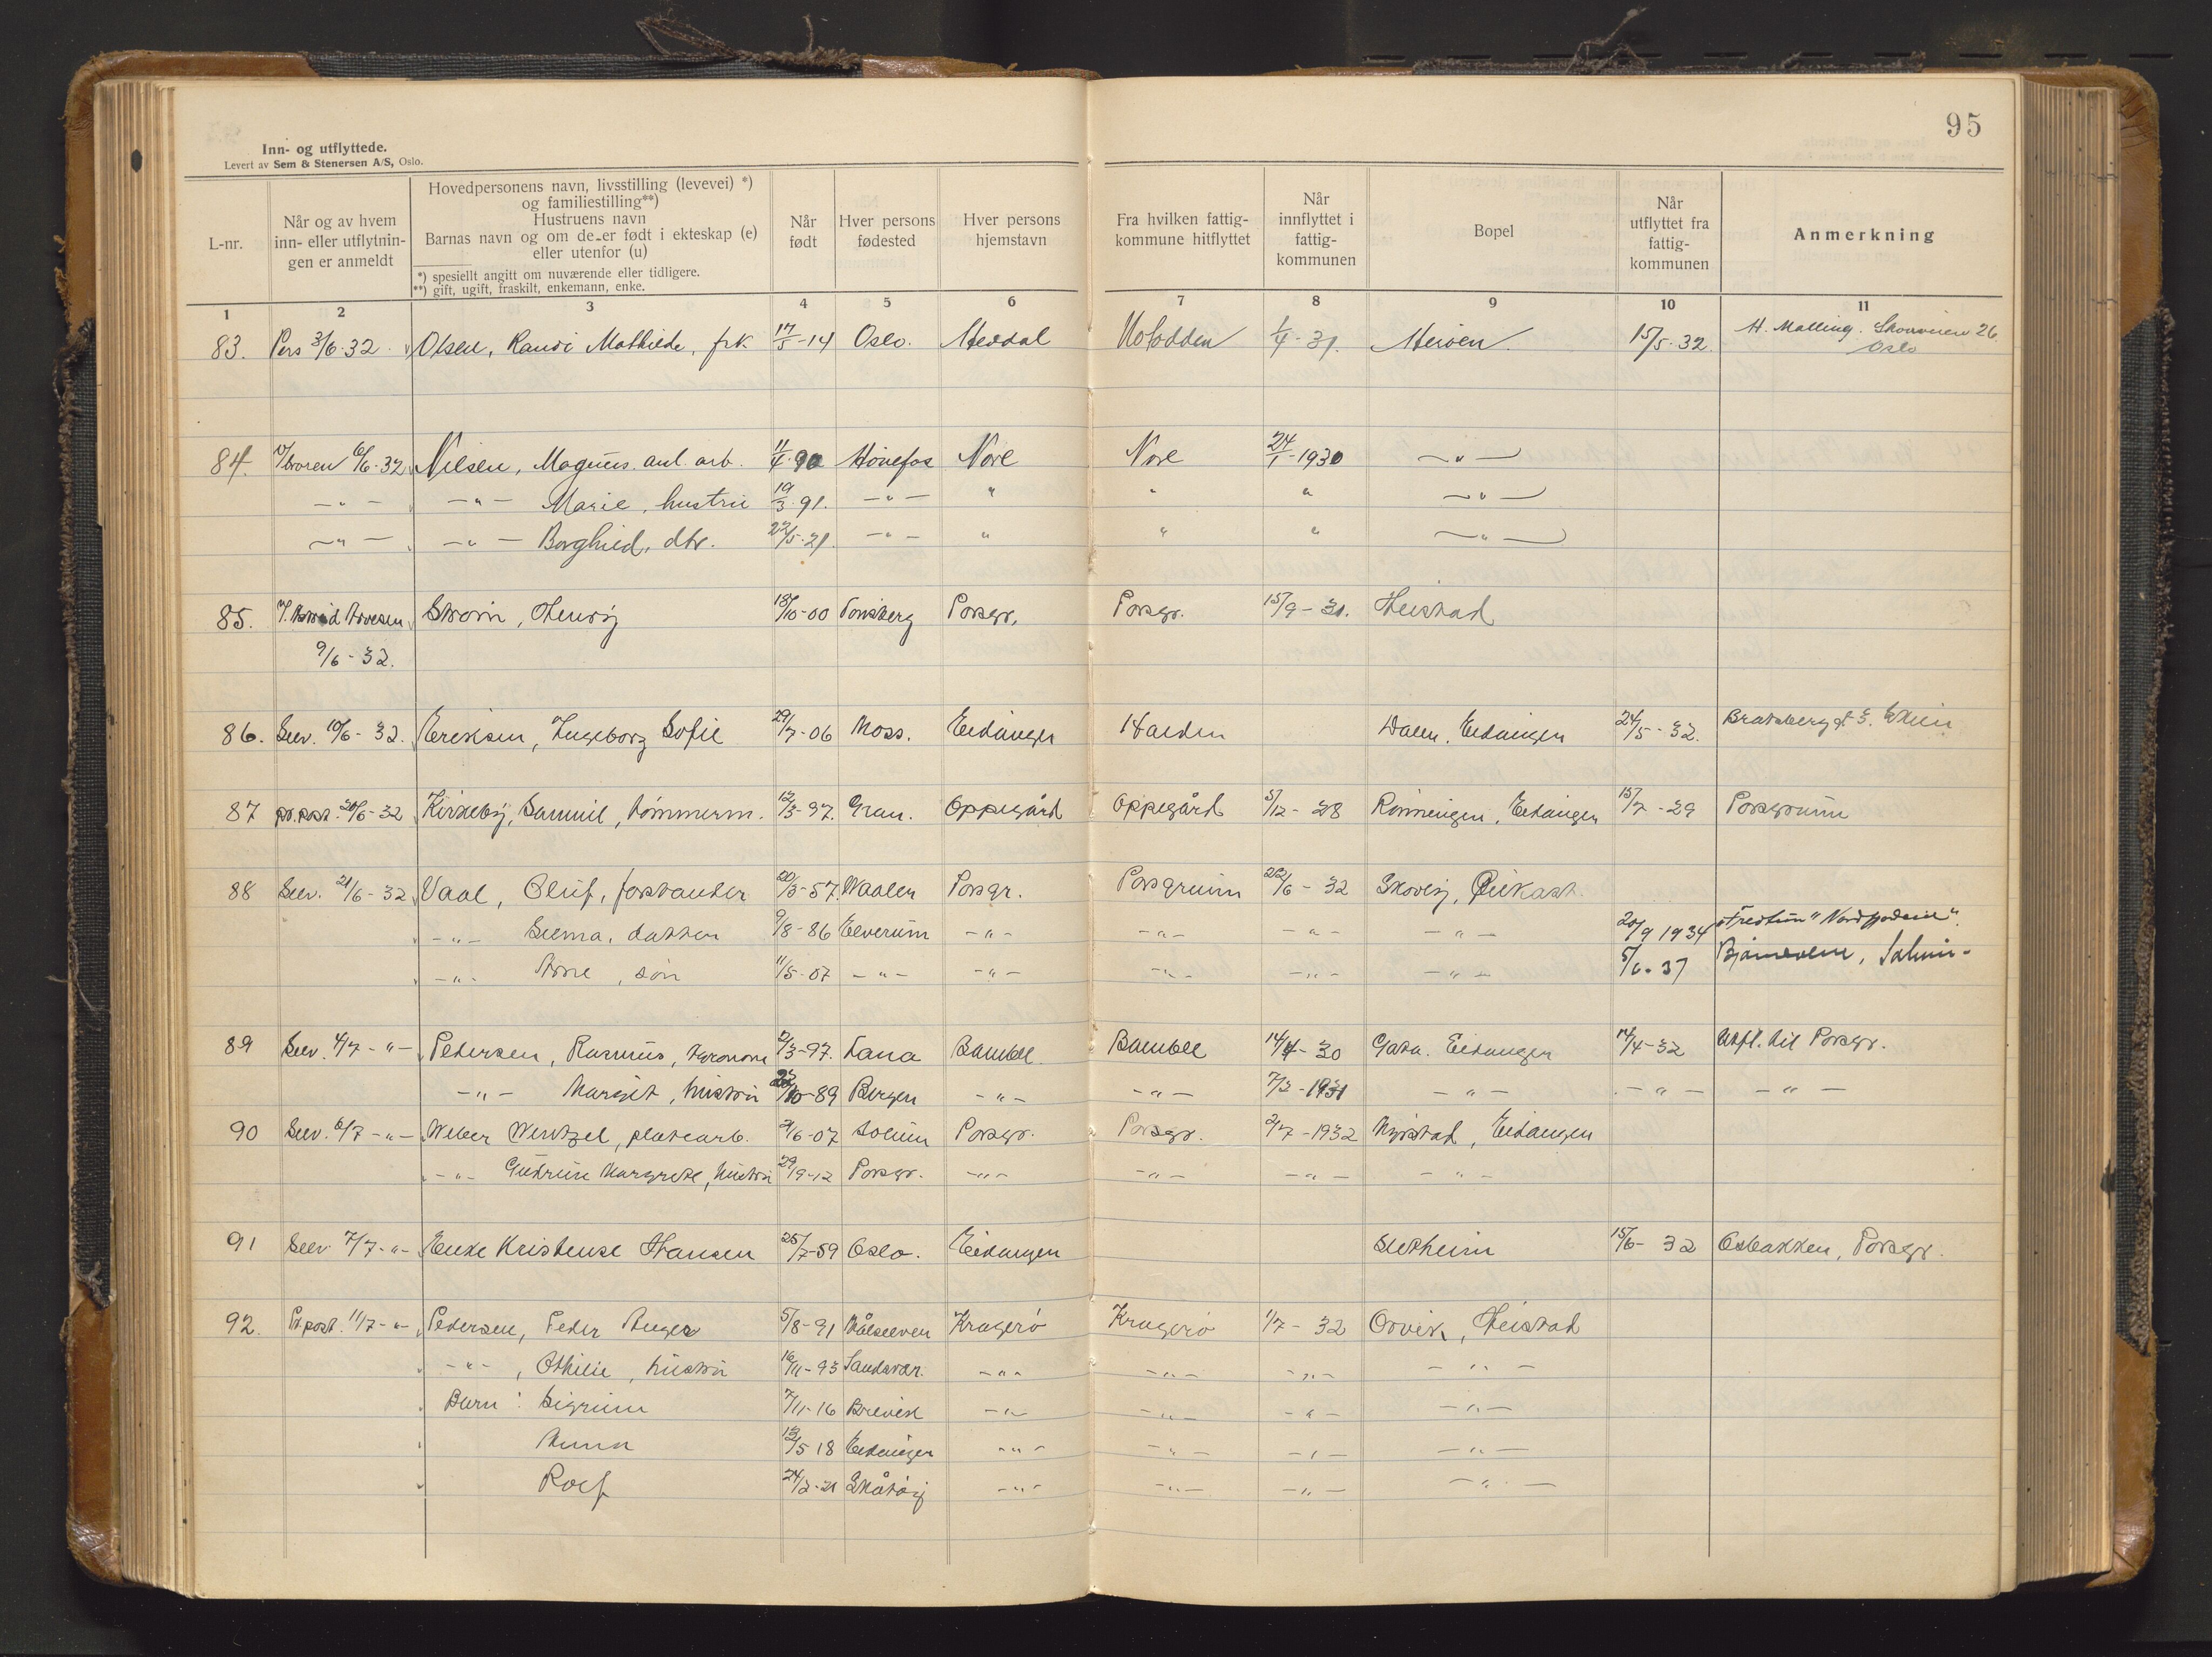 95
Inn- og utflyttede.
Levert av Sem & Stenersen A/S, Oslo.
L-nr.
Når og av hvem
inn- eller utflytnin-
gen er anmeldt
Hovedpersonens navn, livsstilling (levevei) *)
og familiestilling**)
Hustruens navn
Barnas navn og om de er født i ekteskap (e)
eller utenfor (u)
*) spesiellt angitt om nuværende eller tidligere.
**) gift, ugift, fraskilt, enkemann, enke.
Når
født
Hver persons
fødested
Hver persons
hjemstavn
Fra hvilken fattig-
kommune hitflyttet
Når
innflyttet i
fattig-
kommunen
Bopel
Når
utflyttet fra
fattig-
kommunen
Anmerkning
1 2 3 4 5 6 7 8 9 10 11
83. Pers 3/6-32 Olsen, Randi Mathilde, frk. 17/5-14 Oslo. Heddal Notodden 1/4-31. Herøen. 15/5-32. H. Malling. 26
Oslo
84. 6/6-32 Nilsen, Magnus. anl. arb. 11/4-90 Hønefos Nore Nore 24/1-1930 -"-
-"- -"- Marie, hustru 19/3-91. -"- " " " -"-
-"- -"- Borghild, dtr. 22/5-21. -"- " " " -"-
85. Strøm, Henry 18/10-00 Tønsberg Porsgr. Porsgr. 15/9-31. Heistad
9/6-32.
86. Selv. 10/6-32. Eriksen, Ingeborg Sofie 29/7-06 Moss. Eidanger Halden Dalen, Eidanger 24/5-32. Bratsberg gt. 3. Skien
87 pr. post. 20/6-32 Kirkeby, Samuel, tømmerm. 12/3-97. Gran. Oppegård Oppegård 5/12-28 Rønningen, Eidanger 15/7-29 Porsgrunn
88 Selv. 21/6-32 Vaal, Oluf, forstander 20/3-57. Vaaler Porsgr. Porsgrunn 22/6-32 Skovly,
-"- Selma, datter 9/8-86 Elverum -"- -"- -"- -"- 20/9 1934
-"- Arne, søn 11/5-07 -"- -"- -"- -"- -"- 5/6-37
89 Selv. 4/7-"- Pedersen, Rasmus, 2/3-97. Lana Bamble. Bamble 14/4-30 Gata. Eidanger 14/4-32 Utfl. til Porsgr.
-"- Margit, hustru 22/10-89 Bergen -"- -"- 7/3-1931 -"- -"- -"-
90 Selv. 6/7-"- Weber Wentzel, platearb. 2/6-07 Solum Porsgr. Porsgr. 2/7-1932 Nystad, Eidanger
-"- Gudrun Margrete, hustru 29/9-12 Porsgr. -"- -"- -"- -"-
91 Selv 7/7-"- Enke Kristense Hansen 25/7-59 Oslo. Eidanger Sletheim 15/6-32 Osbakken, Porsgr.
92. Pr post. 11/7-"- Pedersen, Peder 5/8-91 Målselven Kragerø Kragerø 1/7-32 Ørvik, Heistad
-"-, Othilie, hustru 16/11-93 Sandsvær. -"- -"- -"- -"-
Barn: Sigrunn 7/11-16 Brevik -"- -"- -"- -"-
Anna 13/5 18 Eidanger -"- -"- -"- -"-
Rolf 24/2-21 Skåtøy -"- -"- -"- -"-